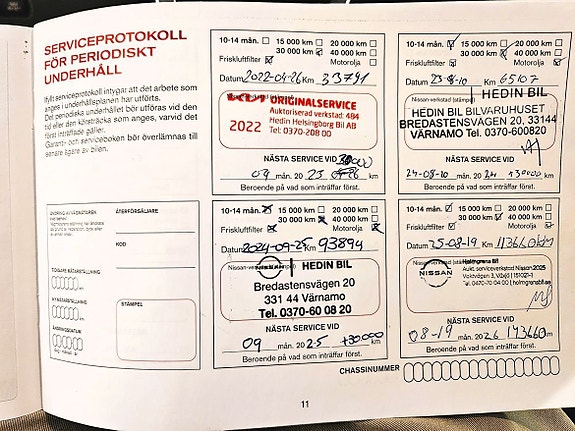 SERVICEPROTOKOLL
FÖR PERIODISKT
UNDERHÅLL
Ifyllt serviceprotokoll intygar att det arbete som
anges i underhållsplanen har utförts.
Det periodiska underhållet bör utföras vid den
tid eller den körsträcka som anges, varvid det
först inträffade gäller.
Garanti- och serviceboken bör överlämnas till
senare ägare av bilen.
ÅTERFÖRSÄLJARE
KOD
STÄMPEL
10-14 mån. 15 000 km 20 000 km
30 000 km 40 000 km
Friskluftfilter Motorolja
Datum 2022-04-26 Km 33791
ORIGINALSERVICE
Auktoriserad verkstad: 484
2022 Hedin Helsingborg Bil AB
Tel: 0370-208 00
NÄSTA SERVICE VID
mån. 20 Km
Beroende på vad som inträffar först.
10-14 mån. 15 000 km 20 000 km
30 000 km 40 000 km
Friskluftfilter Motorolja
Datum 23-8-10 Km 65107
Nissan-verkstad (stämpel) HEDIN BIL
HEDIN BIL BILVARUHUSET
BREDASTENSVÄGEN 20, 33144
VÄRNAMO Tel. 0370-600820
NÄSTA SERVICE VID
24-08-10 mån. 20 24
Beroende på vad som inträffar först.
10-14 mån. 15 000 km 20 000 km
30 000 km 40 000 km
Friskluftfilter Motorolja
Datum 2024-09-25 Km 93894
Nissan-verkstad (stämpel) HEDIN BIL
Bredastensvägen 20
331 44 Värnamo
Tel. 0370-60 08 20
NÄSTA SERVICE VID
09 mån. 2025 +30000 km
Beroende på vad som inträffar först.
10-14 mån. 15 000 km 20 000 km
30 000 km 40 000 km
Friskluftfilter Motorolja
Datum 25-08-19 Km 113660km
Nissan-verkstad (stämpel) Holmgrens Bil
NISSAN Aukt. serviceverkstad Nissan 2025
NÄSTA SERVICE VID
08-19 mån. 2026 143660 km
Beroende på vad som inträffar först.
CHASSINUMMER
11